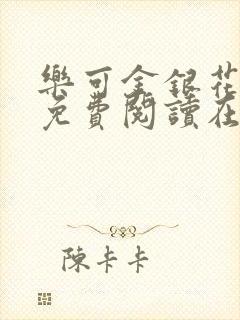 樂可金銀花
免費閱讀在
陳卡卡